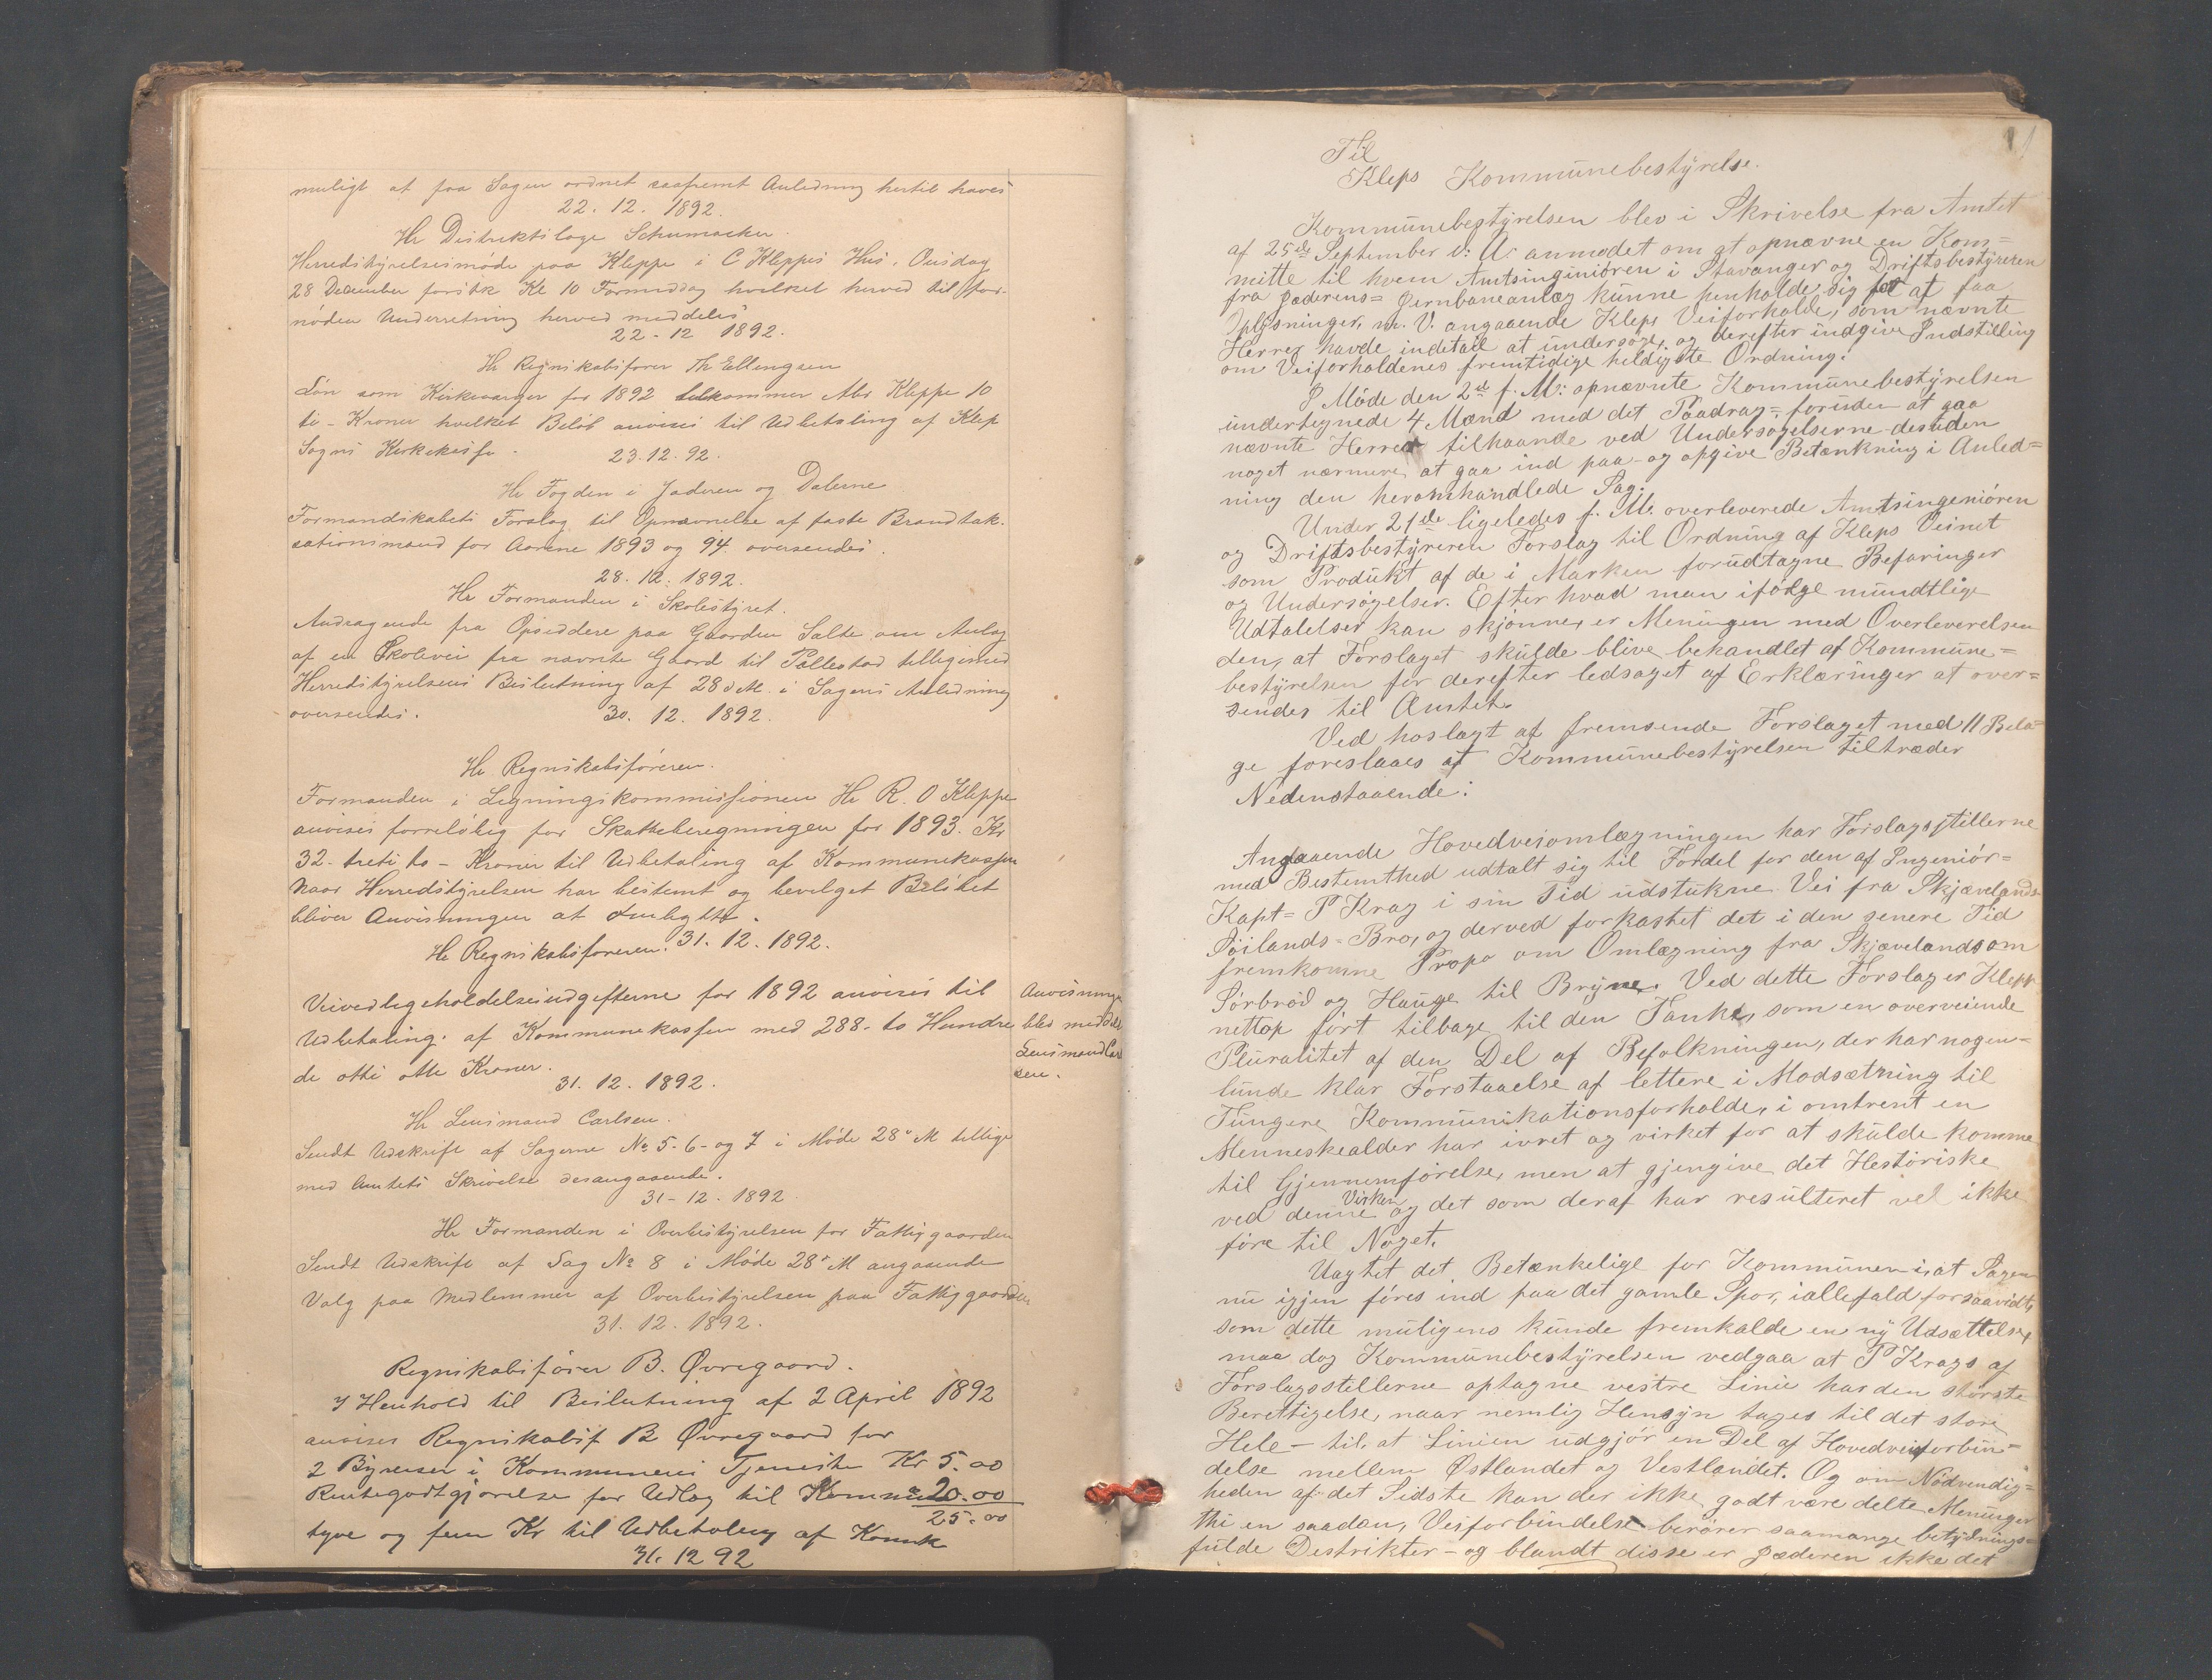 muligt at faa Sagen ordnet saafremt Anledning hertil haves
22. 12. 1892.
Hr Distriktslæge Schumacher.
Herredstyrelsesmøde paa Kleppe i C Kleppes Hus, Onsdag
28 December førstk Kl 10 Formiddag hvilket herved til for-
nøden Underretning herved meddeles
22-12 1892.
Hr Regnskabsfører Th Ellingsen
Løn som Kirkeværger for 1892 tilkommer Abr Kleppe 10
ti - Kroner hvilket Beløb anvises til Udbetaling af Klep
Sogns Kirkekasse.
23.12.92.
Hr Fogden i Jæderen og Dalerne
Formandskabets Forslag til Opnævnelse af faste Brandtak-
sationsmænd for Aarene 1893 og 94 oversendes.
28. 12. 1892.
Hr Formanden i Skolestyret.
Andragende fra Opsiddere paa Gaarden Salte om Anlæg
af en Skolevei fra nævnte Gaard til Pollestad tilligemed
Herredstyrelsens Beslutning af 28 d M. i Sagens Anledning
oversendes.
30. 12. 1892.
Hr Regnskabsføreren.
Formanden i Ligningskommissionen Hr R. O Kleppe
anvises forreløbig for Skatteberegningen for 1893. Kr
32 - treti to - Kroner til Udbetaling af Kommunekassen
Naar Herredstyrelsen har bestemt og bevilget Beløbet
bliver Anvisningen at ombytte.
31. 12. 1892.
Hr Regnskabsføreren.
Veivedligeholdelsesudgifterne for 1892 anvises til
Udbetaling af Kommunekassen med 288 - to Hundre
de otti otte Kroner.
31. 12. 1892.
Anvisningen
blev meddelt
Lensmand Carl
sen.
Hr Lensmand Carlsen.
Sendt Udskrift af Sagerne No 5 - 6 - og 7 i Møde 28 d M tillige
med Amtets Skrivelse desangaaende.
31-12-1892
Hr Formanden i Overbestyrelsen for Fattiggaarden
Sendt Udskrift af Sag No 8 i Møde 28 d M angaaende
Valg paa Medlemmer af Overbestyrelsen paa Fattiggaarden
31. 12. 1892.
Regnskabsfører B. Øvregaard.
I Henhold til Beslutning af 2 April 1892
anvises Regnskabsf B Øvregaard for
2 Byreiser i Kommunens Tjeneste Kr 5.00
Rentegodtgjørelse for Udlæg til Kommunen 20.00
25.00
tyve og fem Kr til Udbetaling af Komnk
31. 12 92
Til
Kleps Kommunebestyrelse.
Kommunebestyrelsen blev i Skrivelse fra Amtet
af 25de September d: A: anmodet om at opnævne en Kom=
mitte til hvem Amtsinginiøren i Stavanger og Driftsbestyreren
fra Jæderens= Jernbaneanlæg kunne henholde sig for at faa
Oplysninger, m. V. angaaende Kleps Veiforholde, som nævnte
Herrer havde indetail at undersøge, og derefter indgive Indstilling
om Veiforholdenes fremtidige heldigste Ordning.
I Møde den 2d f. M: opnævnte Kommunebestyrelsen
undertegnede 4 Mænd med det Paadrag= foruden at gaa
nævnte Herrer tilhaande ved Undersøgelserne desuden
noget nærmere at gaa ind paa - og opgive Betænkning i Anled=
ning den heromhandlede Sag.
Under 21de ligeledes f. M. overleverede Amtsingeniøren
og Driftsbestyreren Forslag til Ordning af Kleps Veinet
som Produkt af de i Marken forudtagne Befaringer
og Undersøgelser. Efter hvad man ifølge mundtlige
Udtalelser kan skjønne, er Meningen med Overleverelsen
den, at Forslaget skulde blive behandlet af Kommune=
bestyrelsen for derefter ledsaget af Erklæringer at over=
sendes til Amtet.
Ved hoslagt at fremsende Forslaget med 11 Bila=
ge foreslaaes at Kommunebestyrelsen tiltræder
Nedenstaaende:
Angaaende Hovedveiomlægningen har Forslagsstillerne
med Bestemthed udtalt sig til Fordel for den af Ingeniør=
Kapt= P Krag i sin Tid udstukne Vei fra Skjævelands=
Søilands= Bro, og derved forkastet det i den senere Tid
fremkomne Propo om Omlægning fra Skjævelandsom
Sørbrød og Hauge til Bryne. Ved dette Forslag er Klepp
nettop ført tilbage til den Tanke, som en overveiende
Pluralitet af den Del af Befolkningen, der har nogen=
lunde klar Forstaaelse af lettere i Modsætning til
Tungere Kommunikationsforholde, i omtrent en
Menneskealder har ivret og virket for at skulde komme
til Gjennemførelse, men at gjengive det Historiske
ved denne Virken og det som deraf har resulteret vel ikke
føre til Noget.
Uagtet det Betænkelige for Kommunen i, at Sagen
nu igjen føres ind paa det gamle Spor, iallefald forsaavidt,
som dette muligens kunde fremkalde en ny Udsættelse,
maa dog Kommunebestyrelsen vedgaa at P Krags af
Forslagsstillerne optagne vestre Linie har den største
Berettigelse, naar nemlig Hensyn tages til det store
Hele - til, at Linien udgjør en Del af Hovedveiforbin=
delse mellem Østlandet og Vestlandet. Og om Nødvendig=
heden af det Sidste kan der ikke godt være delte Meninger
thi en saadan, Veiforbindelse berører saamange betydnings=
fulde Destrikter - og blandt disse er Jæderen ikke det